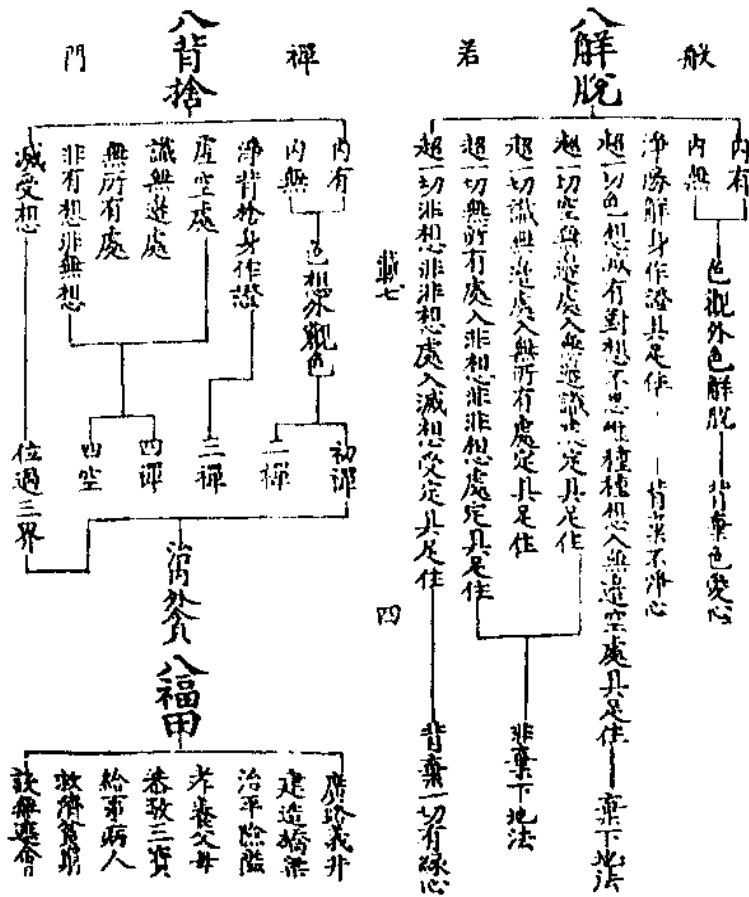 般若
八解脫
內有
內無
色觀外色解脫
背棄色愛心
淨勝解身作證具足住
背棄不淨心
超一切色想滅有對想不思惟種種想入無邊空處具足住
棄下地法
超一切空無邊處入無邊識處定具足住
超一切識無邊處入無所有處定具足住
超一切無所有處入非想非非想處定具足住
非棄下地法
超一切非想非非想處入滅想受定具足住
背棄一切有緣心
載七
四
禪門
八背捨
內有
內無
色想外觀色
淨背捨身作證
虛空處
識無邊處
無所有處
非有想非無想
滅受想
初禪
二禪
三禪
四禪
四空
位過三界
治內外貪
八福田
廣路義井
建造橋梁
治平險隘
孝養父母
恭敬三寶
給事病人
救濟貧窮
設無遮會